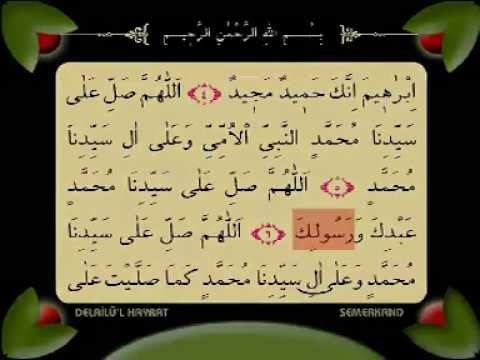 بِسْمِ اللهِ الرَّحْمٰنِ الرَّحِيمِ
اِبْرَاهِيمَ اِنَّكَ حَمِيدٌ مَجِيدٌ ﴿٤﴾ اَللّٰهُمَّ صَلِّ عَلٰى
سَيِّدِنَا مُحَمَّدٍ النَّبِيِّ الْاُمِّيِّ وَعَلٰى اٰلِ سَيِّدِنَا
مُحَمَّدٍ ﴿٥﴾ اَللّٰهُمَّ صَلِّ عَلٰى سَيِّدِنَا مُحَمَّدٍ
عَبْدِكَ وَرَسُولِكَ ﴿٦﴾ اَللّٰهُمَّ صَلِّ عَلٰى سَيِّدِنَا
مُحَمَّدٍ وَعَلٰى اٰلِ سَيِّدِنَا مُحَمَّدٍ كَمَا صَلَّيْتَ عَلٰى
DELAİLÜ'L HAYRAT SEMERKAND